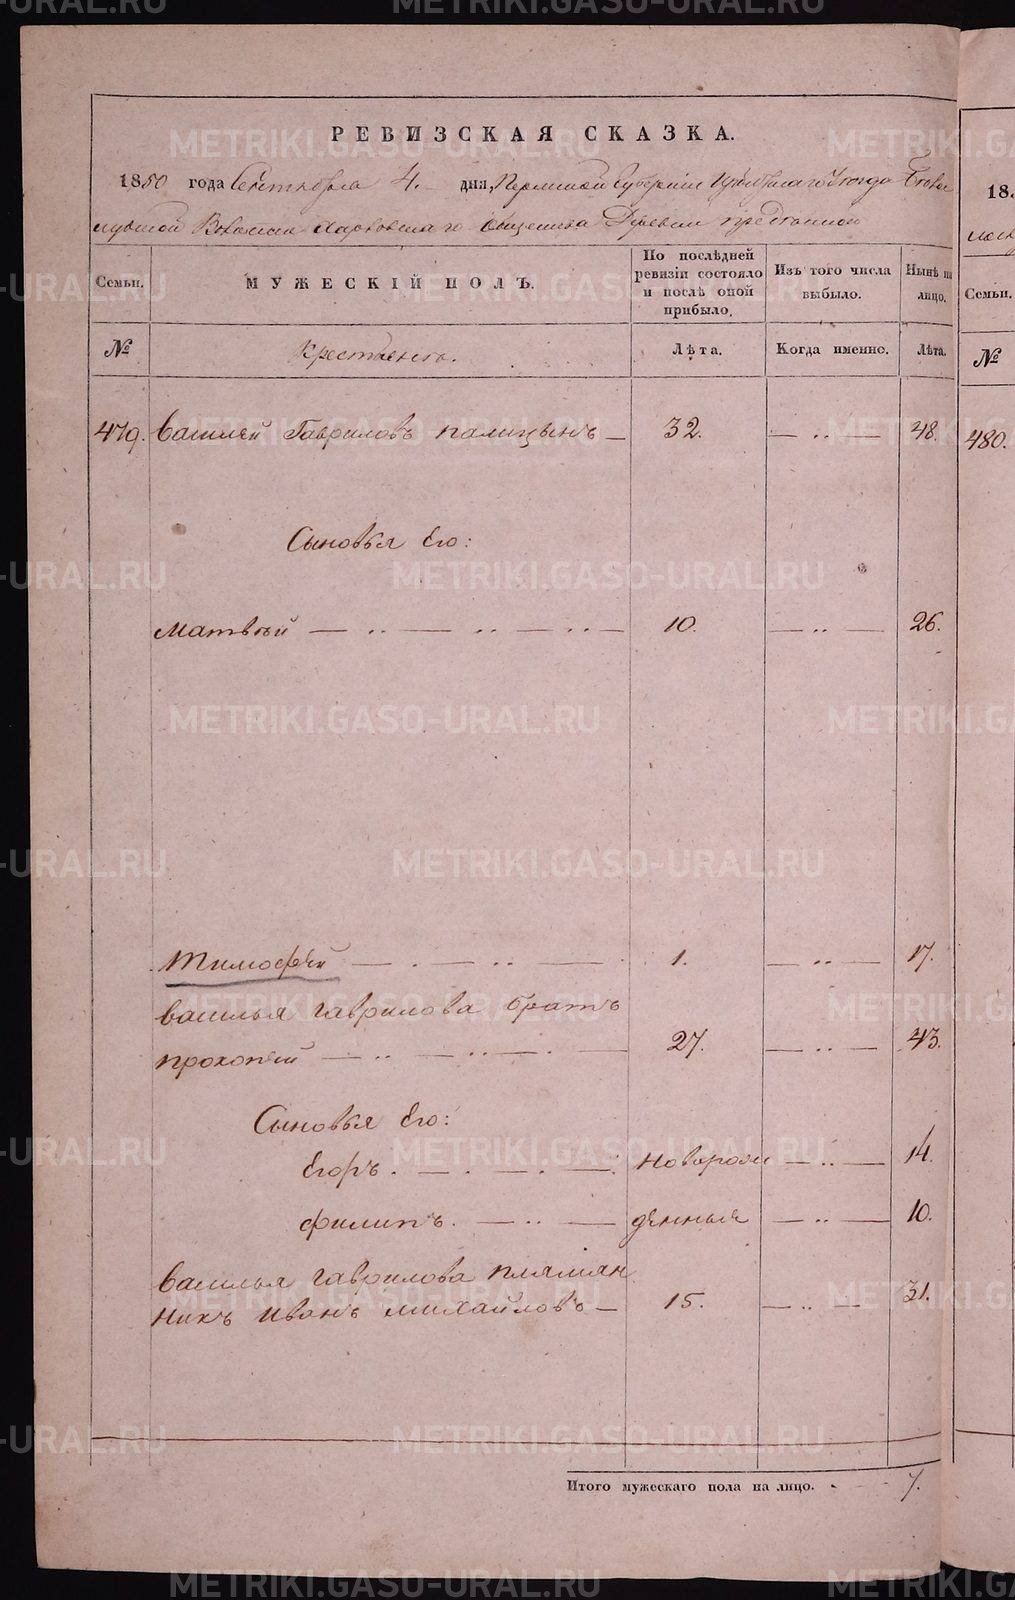 РЕВИЗСКАЯ СКАЗКА.
1850 года Сентября 4. дня, Пермской Губернии Ирбитскаго Уезда
Волости Харловскаго Общества Деревни
Семьи. МУЖЕСКІЙ ПОЛЪ. По послѣдней ревизіи состояло и послѣ оной прибыло. Изъ того числа выбыло. Нынѣ на лицо.
№ Крестьянъ. Лѣта. Когда именно. Лѣта.
479. Василей Гавриловъ Палицынъ 32. 48.
Сыновья Его:
Матвей 10. 26.
Тимофей 1. 17.
Василья Гаврилова братъ
Прокопей 27. 43.
Сыновья Его:
Егоръ. новорож 14.
Филипъ. денныя 10.
Василья Гаврилова племян
никъ Иванъ Михайловъ 15. 31.
Итого мужескаго пола на лицо. 7.
18
Семьи.
№
480.
METRIKI.GASO-URAL.RU